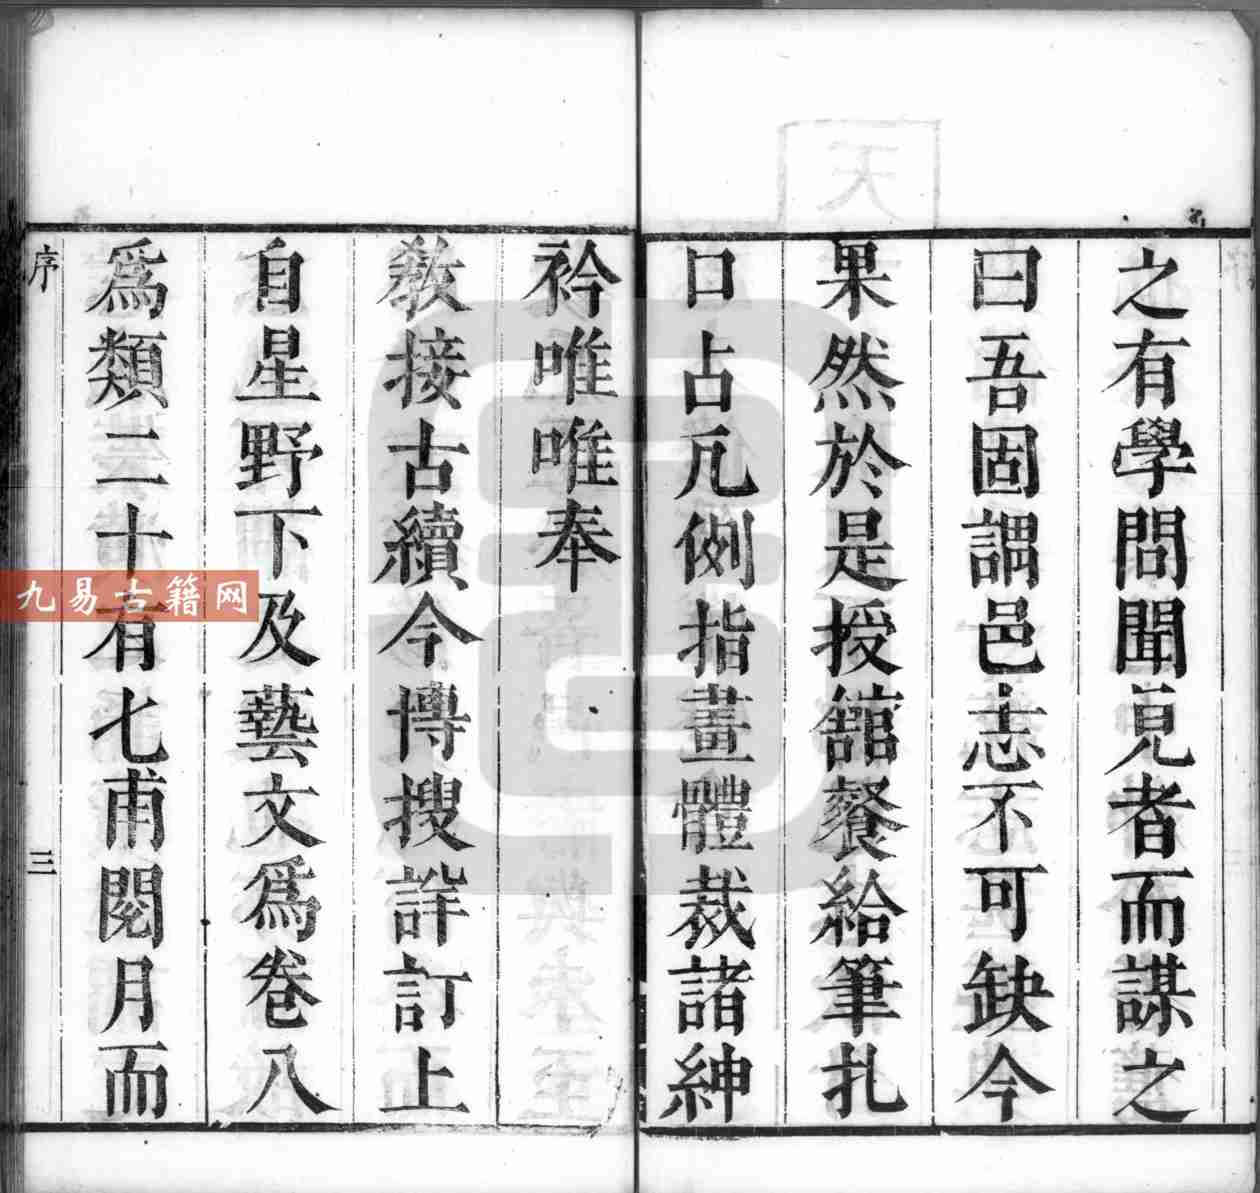 之有學問聞見者而謀之
曰吾固謂邑志不可缺今
果然於是授館餐給筆札
口占凡例指畫體裁諸紳
衿唯唯奉
教接古續今博搜詳訂上
自星野下及藝文為卷八
為類二十有七甫閱月而
序
三
天
九易古籍网